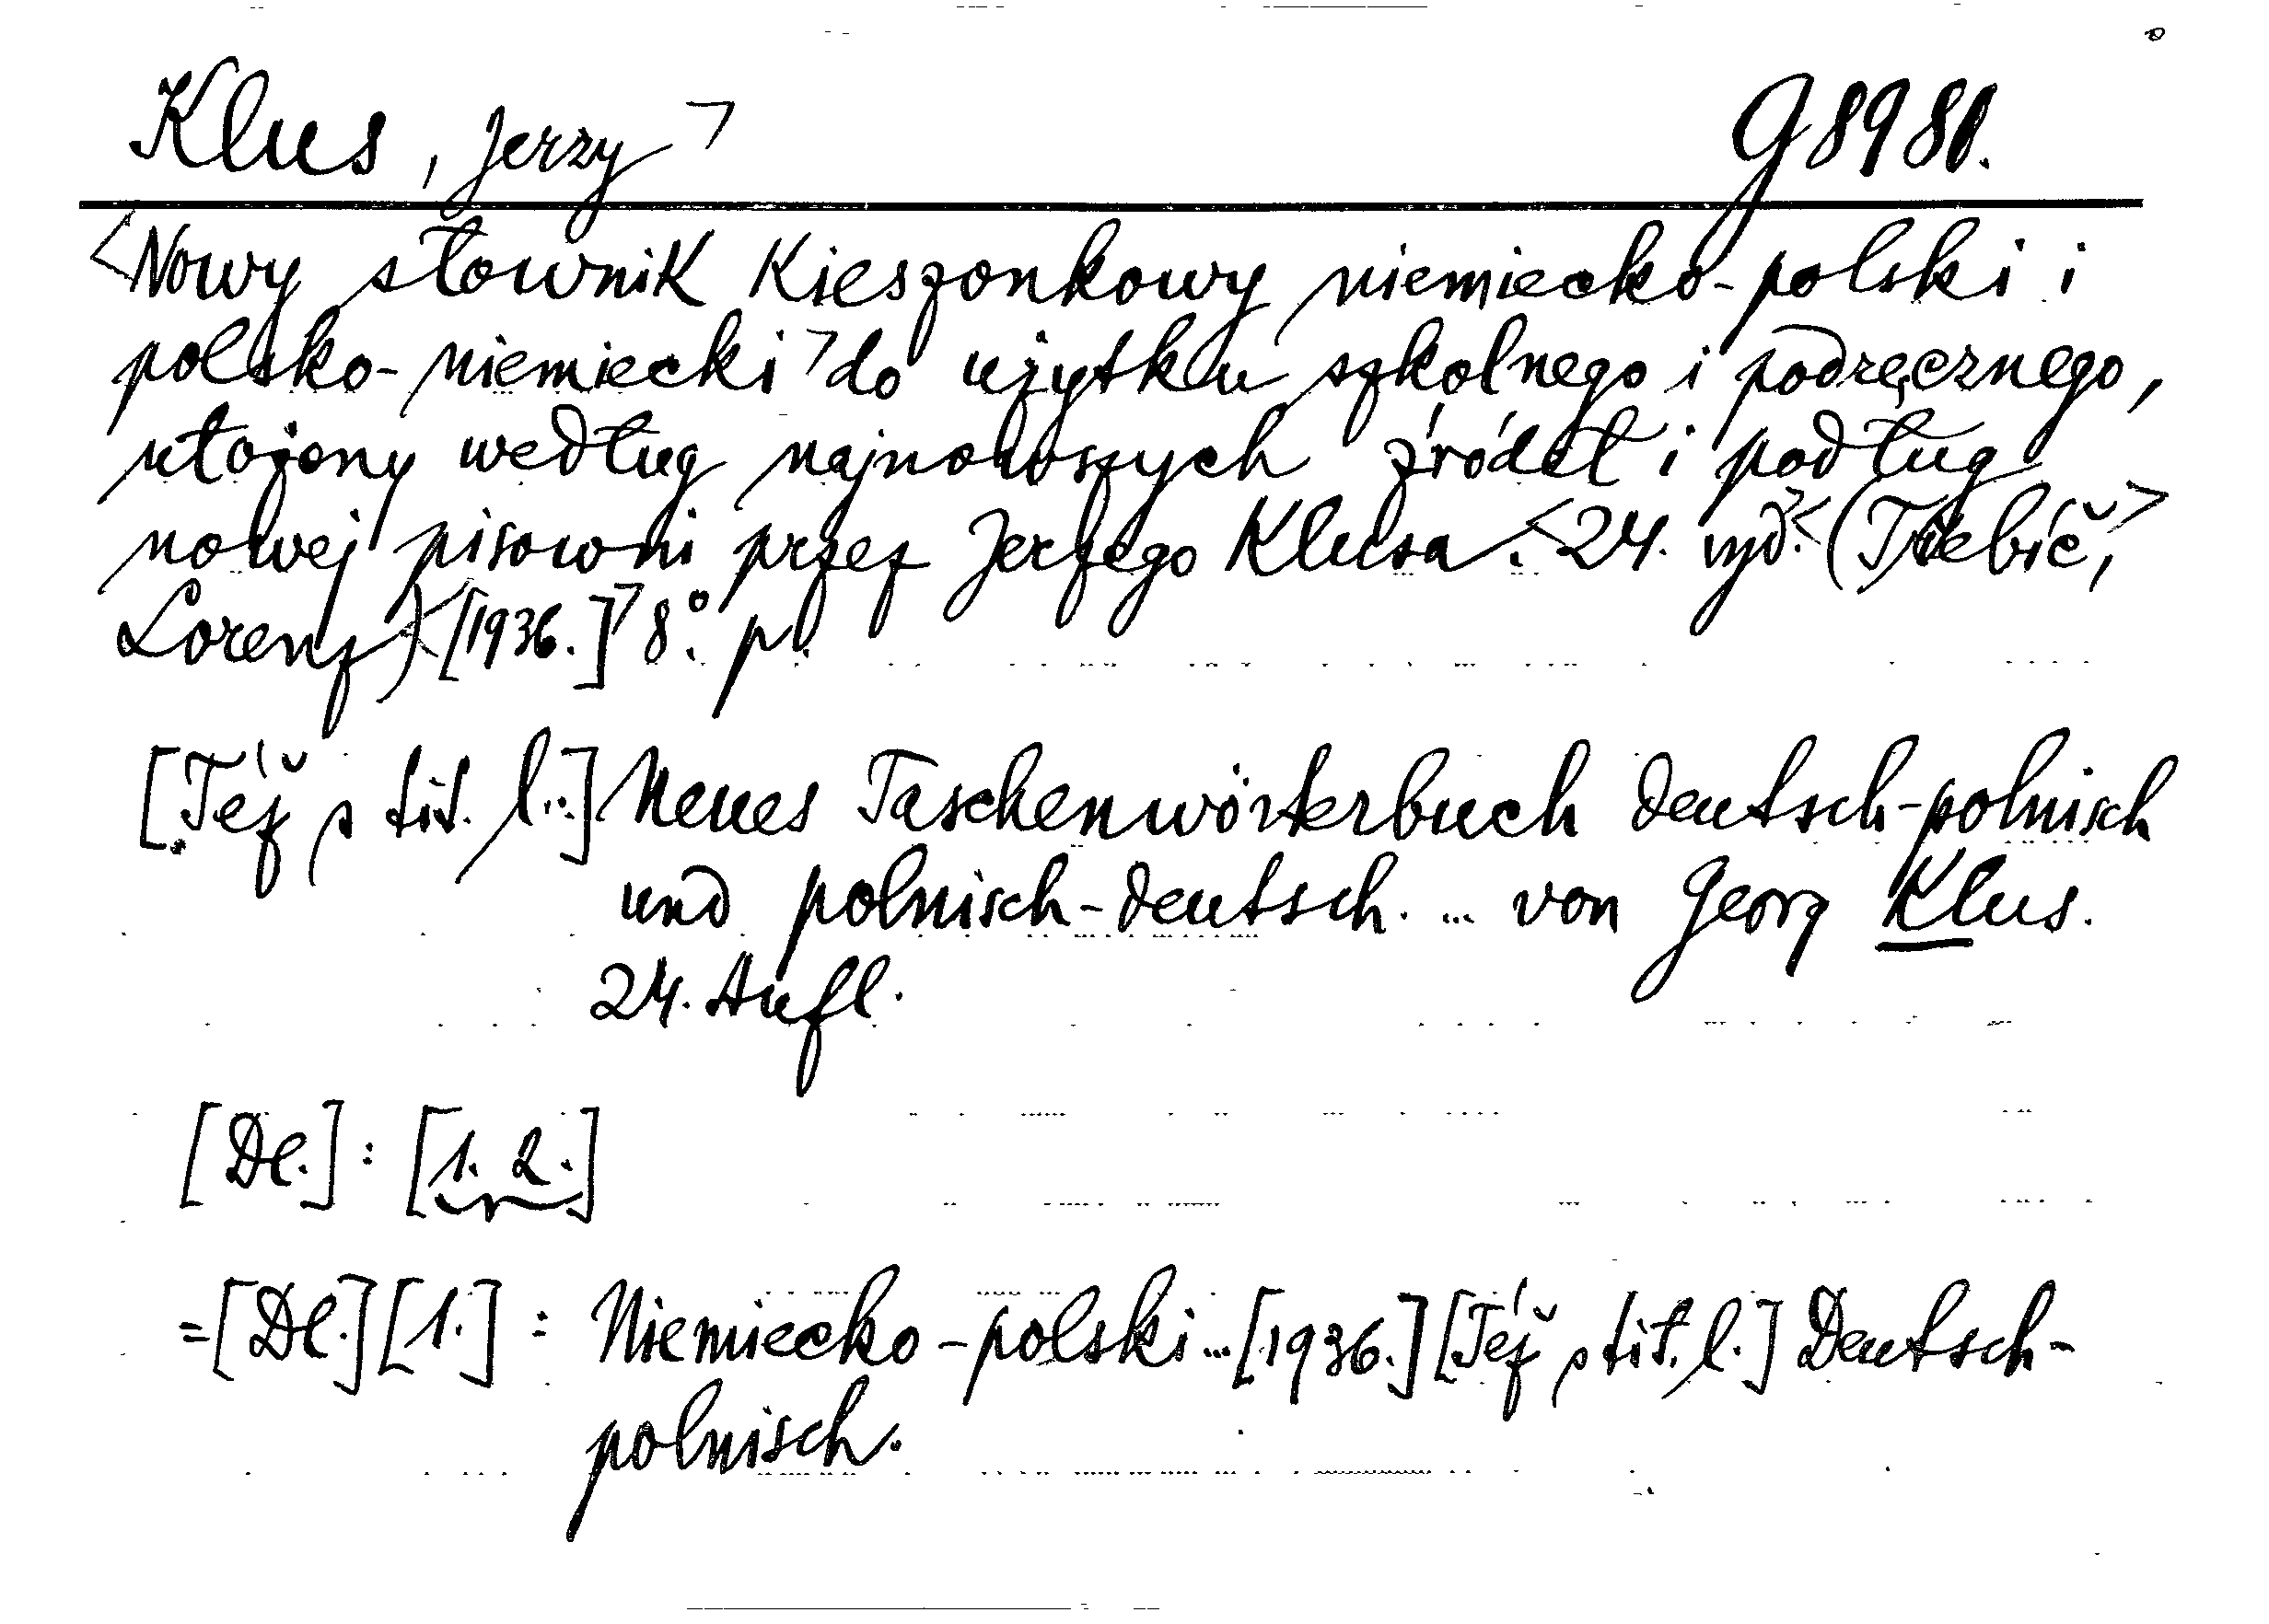 Klus, Jerzy> G 8980.
<Nowy słownik kieszonkowy niemiecko-polski i
polsko-niemiecki> do użytku szkolnego i podręcznego,
ułożony według najnowszych źródeł i podług
nowej pisowni przez Jerzego Klusa. <24. vyd.> <(Třebíč,>
Lorenz) <[1936.]> 8°. pl.
[Též s tit. l.:] Neues Taschenwörterbuch deutsch-polnisch
und polnisch-deutsch. ... von Georg Klus.
24. Aufl.
[Dl.]: [1. 2.]
=[Dl.][1.]: Niemiecko-polski...[1936.][Též s tit. l.] Deutsch-
polnisch.